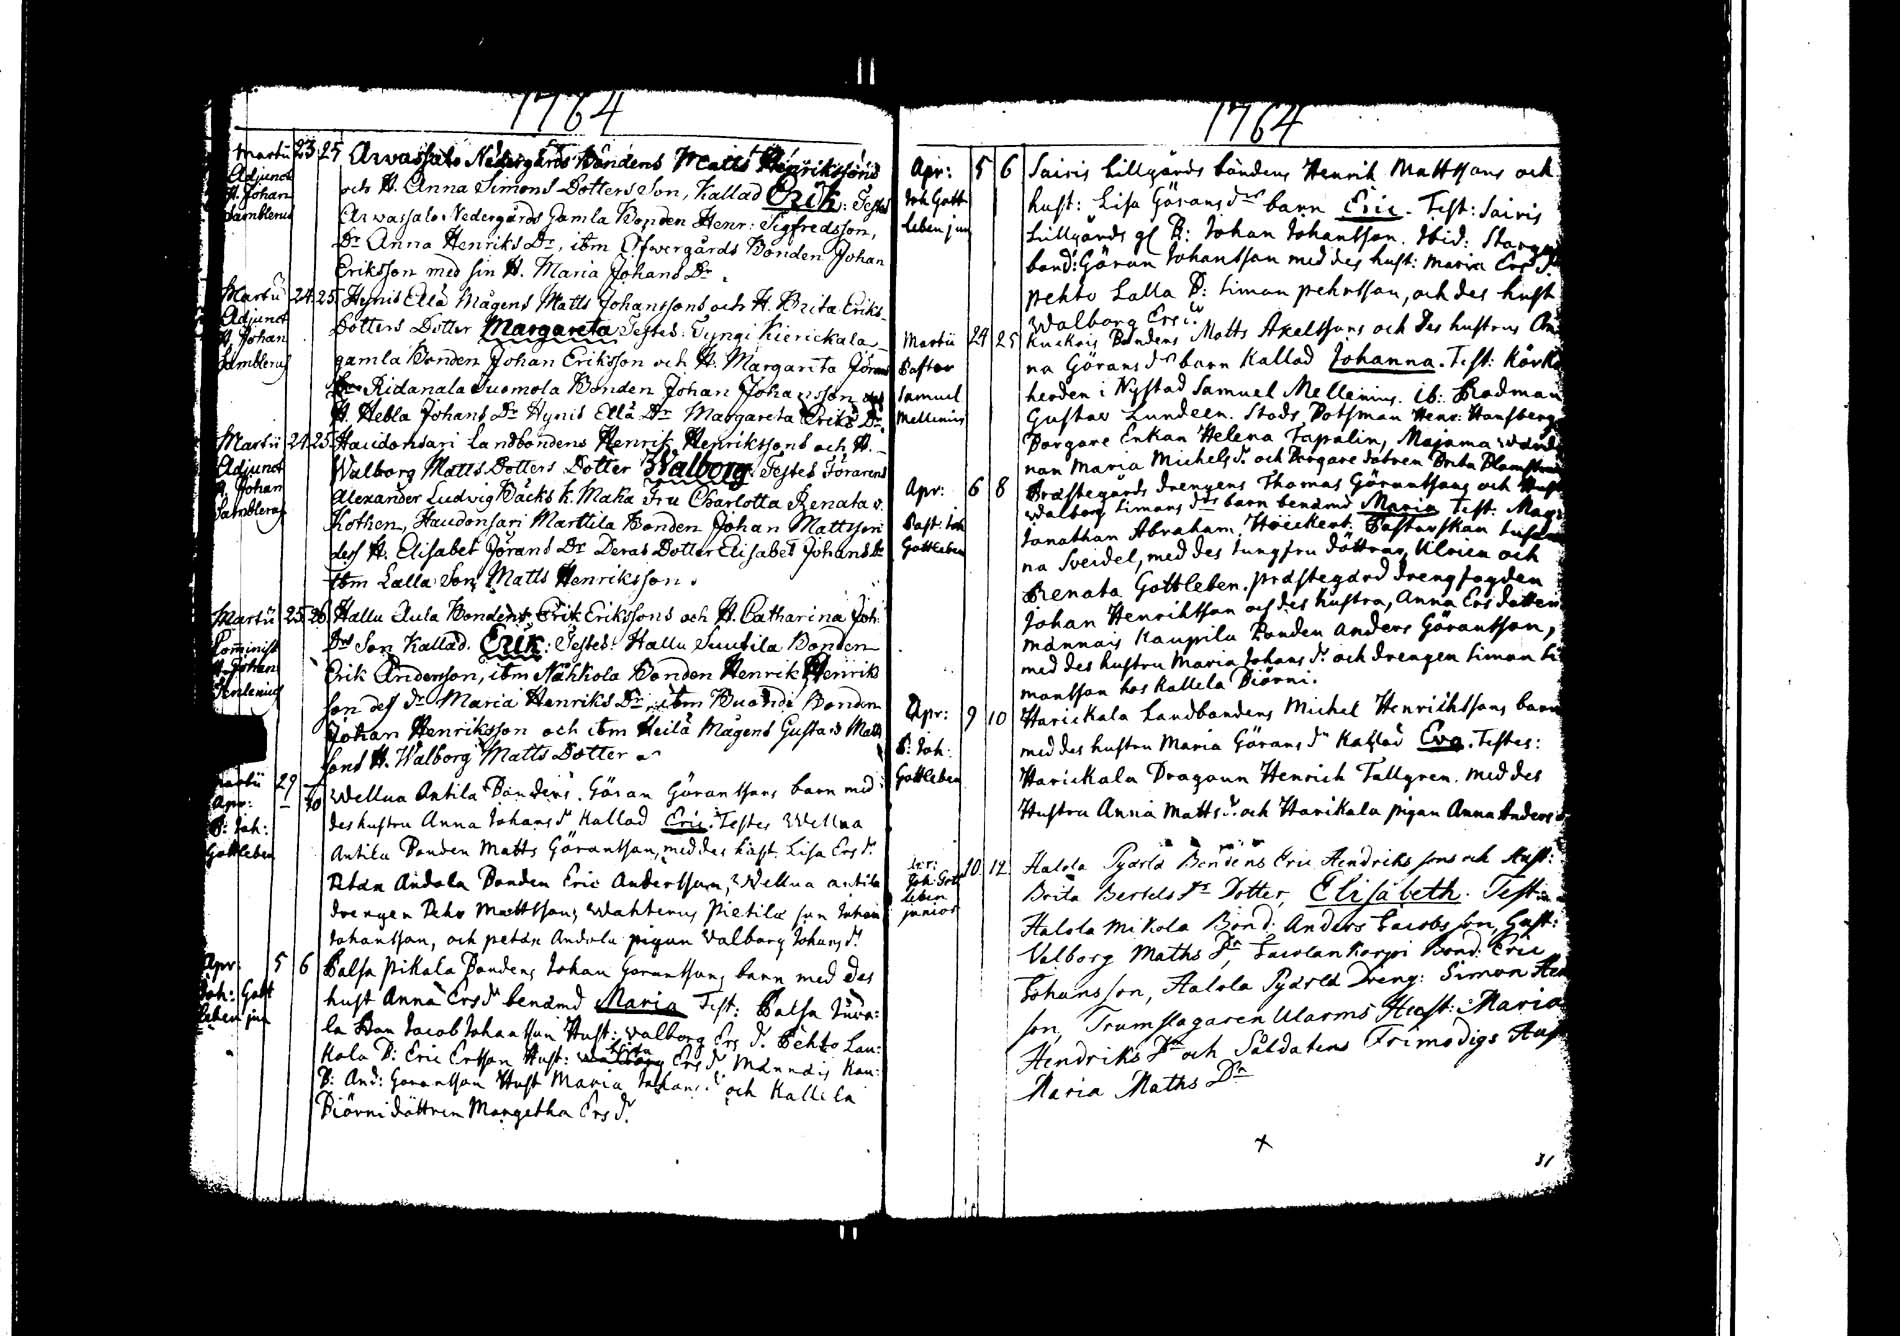 1764
Martii 23 25 Arvassalo Nedergårds Bondens Matts Henrikssons
Adjunct och H. Anna Simons Dotters Son, Kallad Erik: Testes
H. Johan Arvassalo Nedergårds Gamla Bonden Henr: Sigfredsson,
Samblerus Dr Anna Henriks Dr, ibm Öfwergårds Bonden Johan
Eriksson med sin H. Maria Johans Dr.
Martii 24 25 Hynis Ellä Mågens Matts Johanssons och H. Brita Eriks
Adjunct Dotters Dotter Margareta Testes: Tyngi Kierickala
H. Johan gamla Bonden Johan Eriksson och H. Margarita Jörans
Samblerus Dr Ridanala Suomola Bonden Johan Johansson och
H. Hebla Johans Dr Hynis Ellä Dr Margareta Eriks Dr.
Martii 24 25 Haudonsari Landbondens Henrik Henrikssons och H.
Adjunct Walborg Matts Dotters Dotter Walborg. Testes Förarens
H. Johan Alexander Ludvig Bäcks k. Maka Fru Charlotta Renata v.
Samblerus Kothen, Haudonsari Marttila Bonden Johan Mattsson
dess H. Elisabet Jörans Dr Deras Dotter Elisabet Johans Dr
ibm Lalla Son Matts Henriksson.
Martii 25 26 Hallu Aula Bondens Erik Erikssons och H. Catharina Joh:
Comminist Drs Son Kallad. Erik: Testes: Hallu Suutila Bonden
H. Johan Erik Andersson, ibm Nähkola Bonden Henrik Henriks
son dess Dr Maria Henriks Dr ibm Buandi Bonden
Johan Henriksson och ibm Heilä Mågens Gustavs Matts
sons H. Walborg Matts Dotter
Martii 29
Apr: 10 Wellua Antila Bondens. Göran Göranssons barn med
P: Joh: des hustru Anna Johans dr Kallad Eric. Testes Wellua
Gottleben Antila Bonden Matts Göransson, med des hust. Lisa Ers dr.
Petän Andola Bonden Eric Andersson, Wellua antila
drengen Pehr Mattsson, Wahterus Pietilä son Johan
Johansson, och petän Andola pigan Valborg Johans dr.
Apr: 5 6 Palsa pikala Bondens Johan Göranssons barn med des
Joh: Gott hust Anna Ers dr benämd Maria Test: Palsa Juva:
leben jun la Bon Jacob Johansson Hust: Valborg Ers dr. Pehto Lau:
kola B: Eric Ersson Hust: Brita Ers dr. Männäis Kau:
B: And: Göransson Hust Maria Johans dr och Kallela
Piörni döttren Margetha Ers dr.
1764
Apr: 5 6 Sairis Lillgårds bondens Henrik Mattssons och
Joh Gott hust: Lisa Görans drs barn Eric. Test: Sairis
leben jun Lillgårds gl B: Johan Johansson. Ibid: Storgårds
bond: Göran Johansson med des hust: Maria Ers dr.
pehto Lalla B: Simon pehrsson, och des hust
Walborg Ers dr
Martii 24 25 Kuckois Bondens Matts Axelssons och Des hustrus An
Pastor na Görans drs barn Kallad Johanna. Test: Körko
Samuel herden i Nystad Samuel Mellenius. ib: Rådman
Mellenius Gustav Lundeen. Stads Botsman Henr: Hansberg,
Borgare Enkan Helena Tapalin, Majama Wärd
nan Maria Michels dr. och Borgare dotren Brita Blomstr
Apr: 6 8 Prästegårds drengens Thomas Göranssons och Hust
Walborg Simons drs barn benämd Maria Test: Mag:
Past: Joh Jonathan Abraham Höckert. Pastorskan Susan
Gottleben na Sveidel, med des Jungfru döttrar Ulrica och
Renata Gottleben. prästegård drengfogden
Johan Henriksson och des hustru, Anna Ers dotter
männäis Kaupila Bonden Anders Göransson,
med des hustru Maria Johans dr. och drengen Simon Si
monsson hos Kallela Piörni.
Apr: 9 10 Harickala Landbondens Michel Henrichssons barn
P: Joh: med des hustru Maria Görans dr Kallad Eva. Testes:
Gottleben Harickala Dragoun Henrich Tallgren. med des
Hustru Anna Matts dr. och Harikala pigan Anna Anders dr
10 12 Halola Pyärlä Bondens Eric Hendriks sons och Hust:
Joh: Gott Brita Bertels Dr Dotter, Elisabeth. Test:
leben Halola Mikola Bond: Anders Jacobsson, Hust:
junior Valborg Maths Dr, Bond: Eric
Johansson, Halola Pyärlä Dreng: Simon Hen
son, Trumslagaren Ularms Hust: Maria
Hendriks Dr och Soldatens Frimodigs Hust
Maria Maths Dr
31